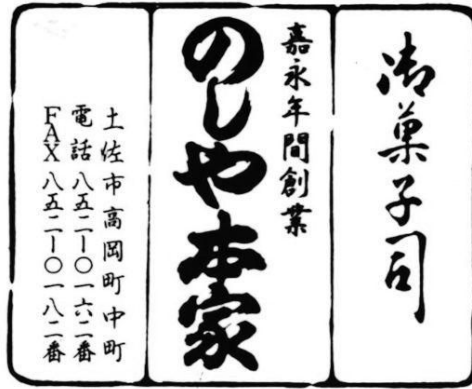 御菓子司
嘉永年間創業
のしや本家
土佐市高岡町中町
電話八五二ー〇一六二番
FAX八五二ー〇一八二番